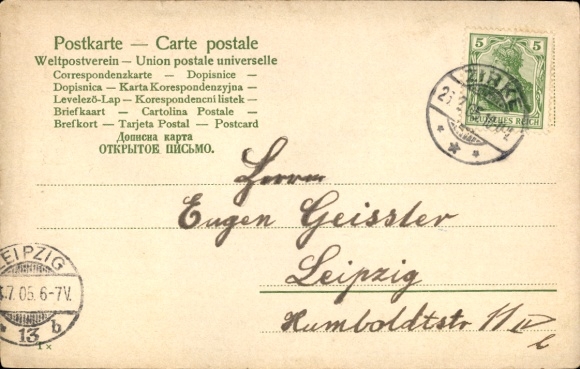 Postkarte — Carte postale
Weltpostverein — Union postale universelle
Correspondenzkarte — Dopisnice —
Dopisnica — Karta Korespondenzyjna —
Levelező-Lap — Korespondencni listek —
Briefkaart — Cartolina Postale —
Brefkort — Tarjeta Postal — Postcard
Дописна карта
ОТКРЫТОЕ ПИСЬМО.
5 5
DEUTSCHES REICH
ZIRKE
Herrn
Eugen Geissler
Leipzig
Humboldtstr 11 IV
LEIPZIG
.7.05. 6-7V.
* 13 b